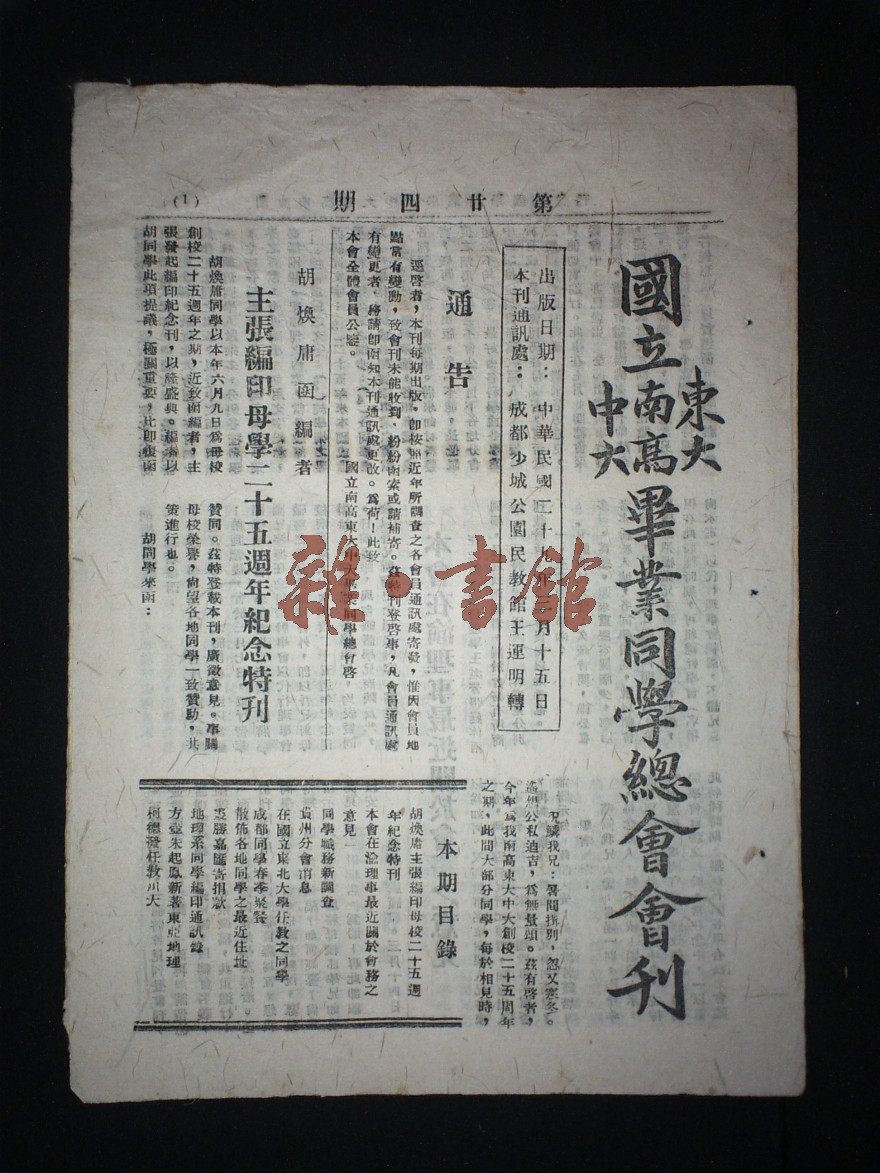 第廿四期
(1)
國立南高東大中大畢業同學總會會刊
出版日期：中華民國二十九年 月十五日
本刊通訊處：成都少城公園民教館王運明轉
通告
逕啓者，本刊每期出版，即按照近年所調查之各會員通訊處寄發，惟因會員地
點常有變動，致會刊未能收到，紛紛函索或請補寄。茲特刊登啓事，凡會員通訊處
有變更者，務請即函知本刊通訊處更改。爲荷！此致
本會全體會員公鑒。
國立南高東大中大畢業同學總會啓
胡煥庸函編者
主張編印母學二十五週年紀念特刊
胡煥庸同學以本年六月九日爲母校
創校二十五週年之期，近致函編者，主
張發起編印紀念刊，以隆盛典。編者以
胡同學此項提議，極關重要，此即復函
贊同。茲特登載本刊，廣徵意見。事關
母校榮譽，尚望各地同學一致贊助，共
策進行也。
胡同學來函：
況麟我兄：暑間握別，忽又寒冬。
遙想公私適吉，爲無量頌。茲有啓者，
今年爲我南高東大中大創校二十五周年
之期，此間大部分同學，每於相見時，
本期目錄
胡煥庸主張編印母校二十五週
年紀念特刊
本會在渝理事最近關於會務之
意見
同學職務新調查
貴州分會消息
在國立東北大學任教之同學
成都同學春季聚餐
散佈各地同學之最近住址
裘勝嘉匯寄捐款
地理系同學編印通訊錄
方壺朱起鳳新著東亞地理
柯德發任教川大
雜·書館